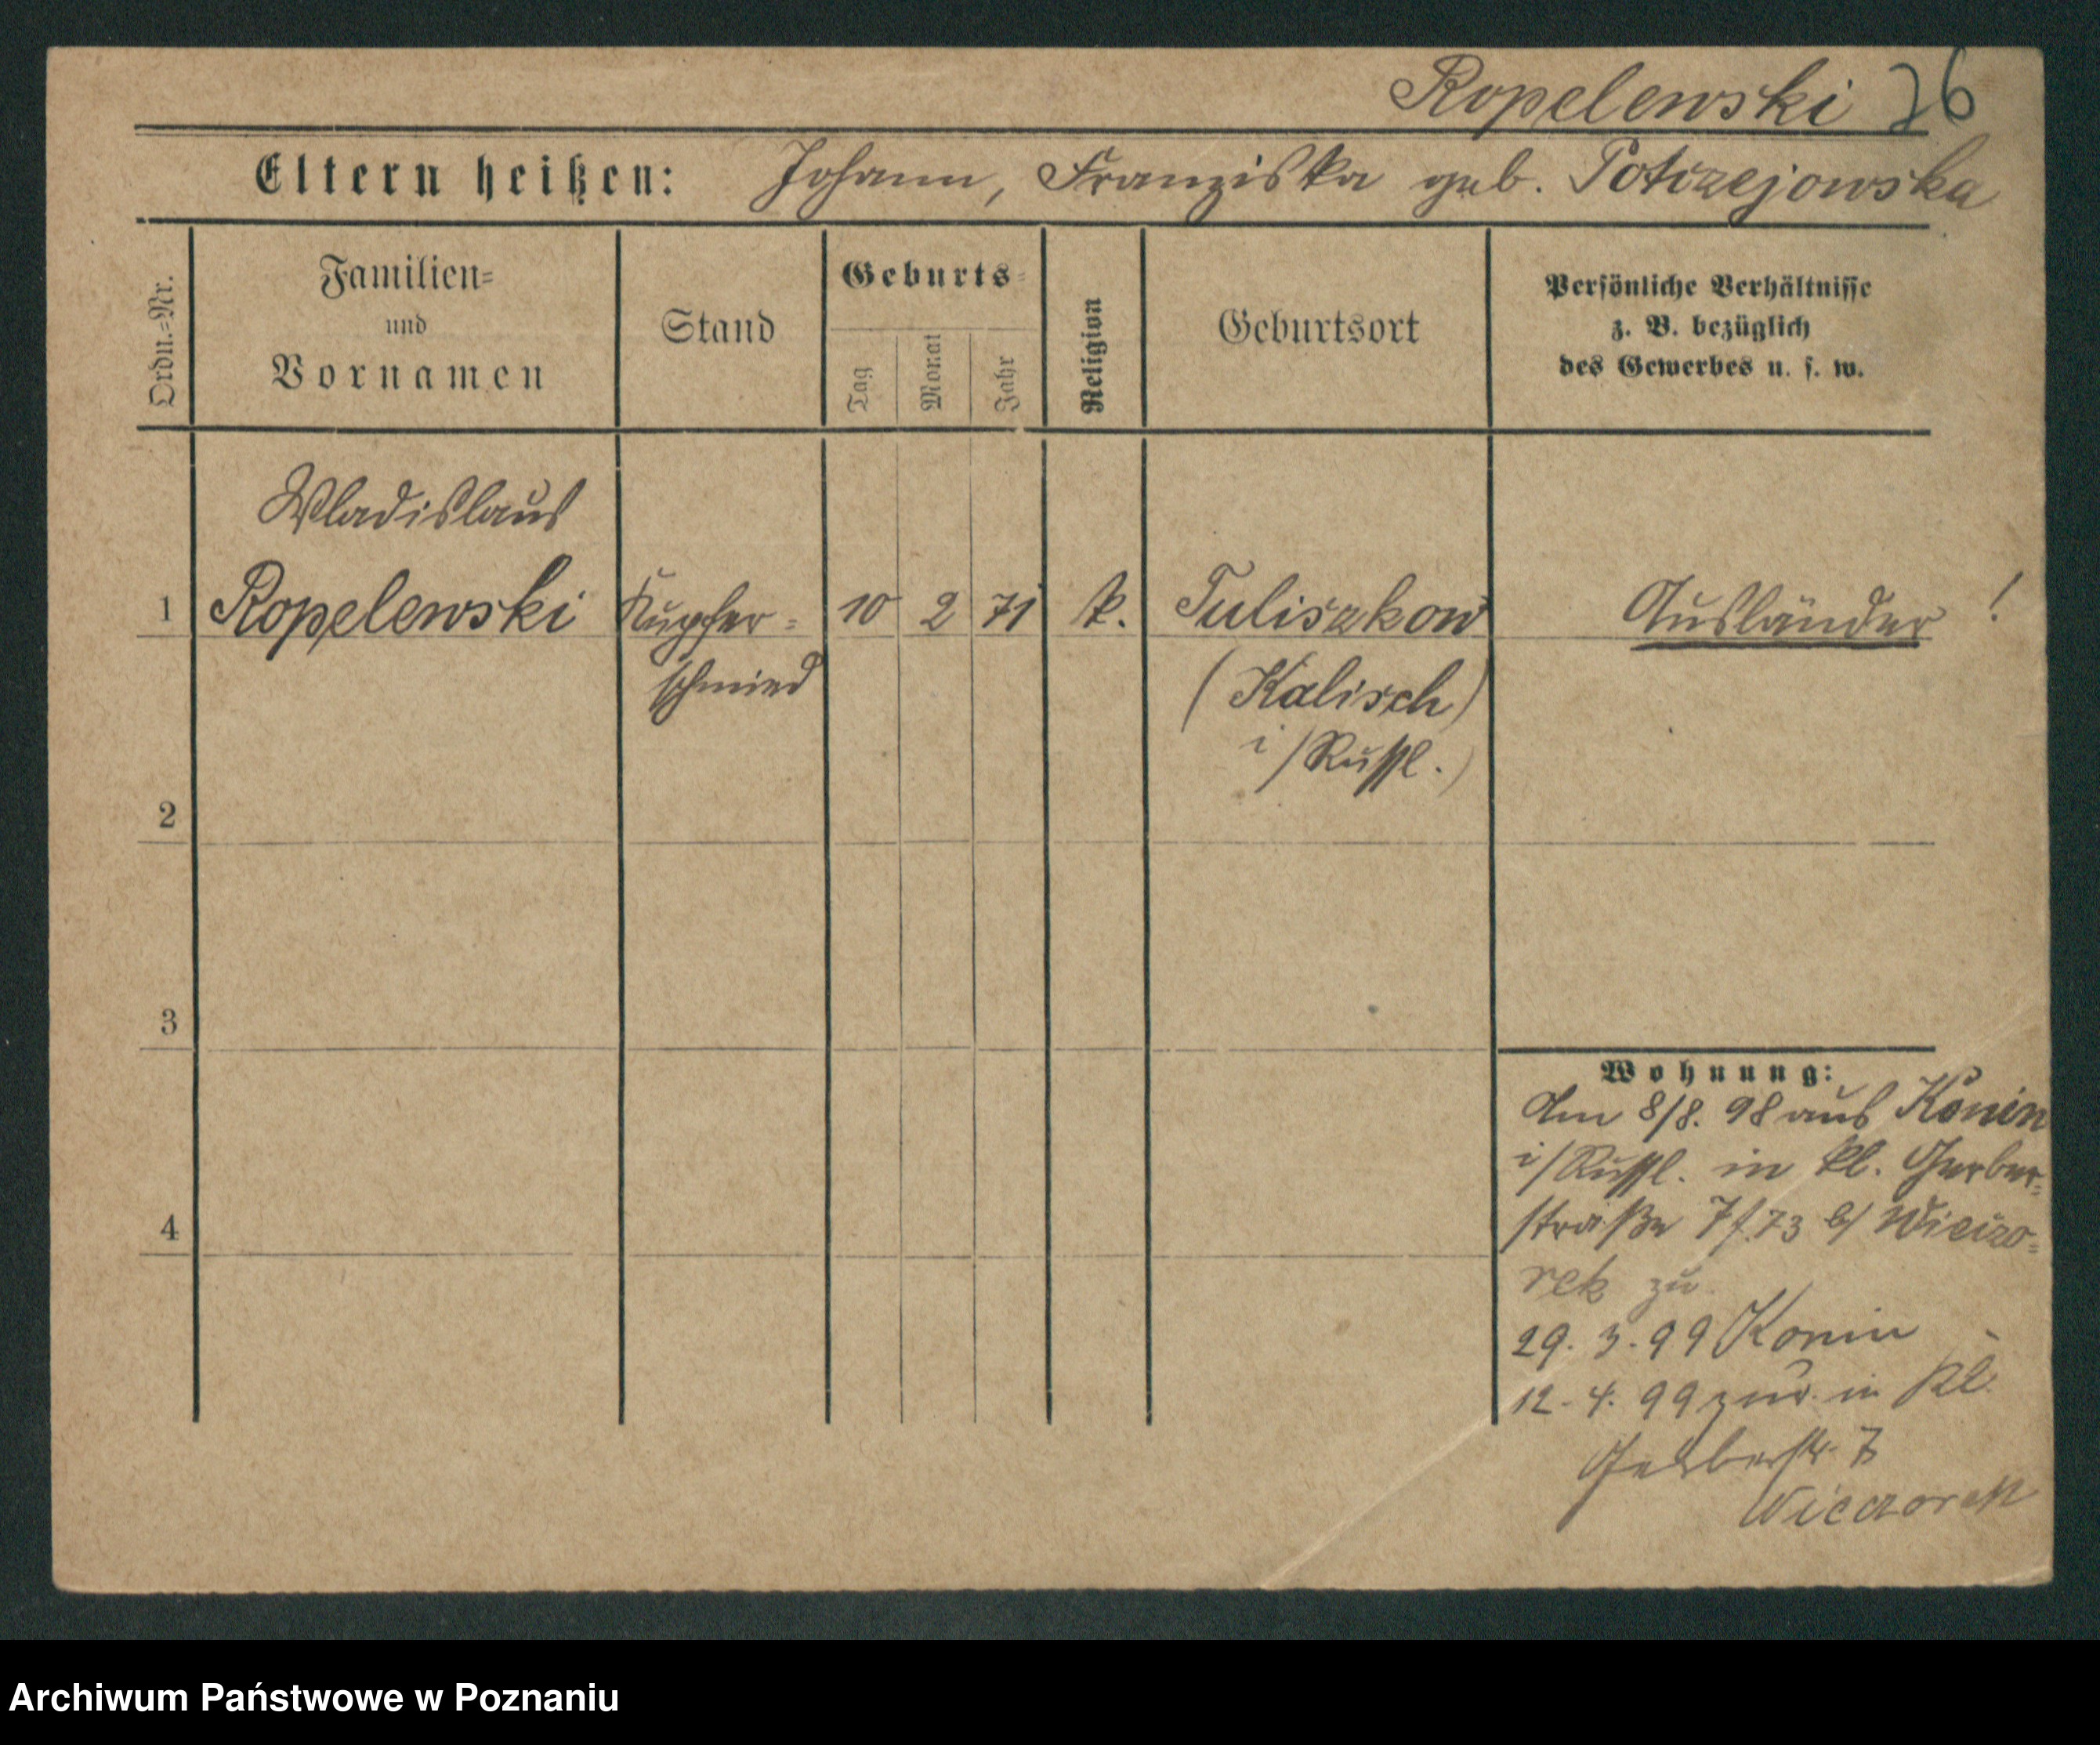 Ropelewski 26
Eltern heißen: Johann, Franziska geb. Potrzejowska
Ordn.=Nr.
Familien=
und
Vornamen
Stand
Geburts=
Tag
Monat
Jahr
Religion
Geburtsort
Persönliche Verhältnisse
z. B. bezüglich
des Gewerbes u. s. w.
Wladislaus
1 Ropelewski Kupfer= 10 2 71 k. Tuliszkow Ausländer !
schmied (Kalisch)
i/Russl.)
2
3
Wohnung:
Am 8/8. 98 aus Konin
i/Russl. in kl. Gerber=
4
straße 7 f. 73 b/ Wieczo=
rek zu
29. 3. 99 Konin
12. 4. 99 zur. in kl.
Gerberstr. 7
Wieczorek
Archiwum Państwowe w Poznaniu